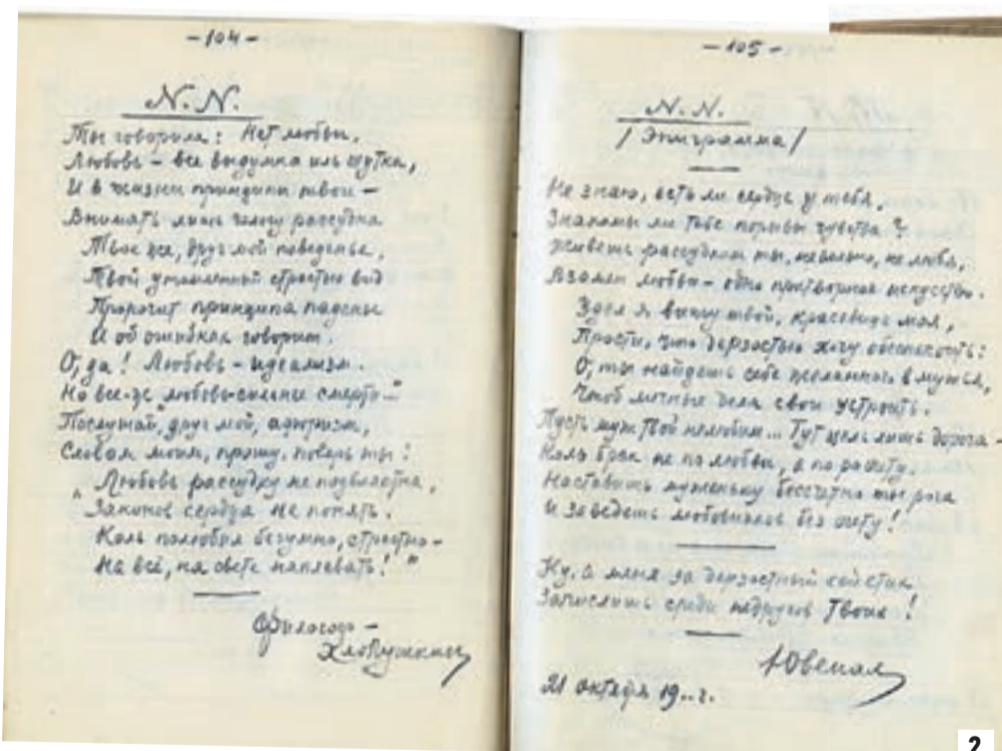 -104-
N.N.
Ты говорила: Нет любви,
Любовь - все выдумка иль шутка,
И в жизни принципы твои -
Внимать лишь голосу рассудка
Твое же, друг мой поведенье,
Твой утомленный страстью вид
Пророчит принципа паденье
И об ошибках говорит.
О, да! Любовь - идеализм.
Но все-же любовь сильнее смерти-"
Послушай, друг мой, афоризм,
Словам моим, прошу, поверь ты:
"Любовь рассудку не подвластна,
Законов сердца не понять.
Коль полюбил безумно, страстно -
На всё, на свете наплевать!"
Философ -
Хлопушкин
-105-
N.N.
/ Эпиграмма /
Не знаю, есть ли сердце у тебя,
Знакомы ли тебе порывы чувства?
Живешь рассудком ты, не любя,
Взамен любви - одно притворное искусство.
Здесь я вину твой, красавица моя,
Прости, что дерзостью хочу обеспокоить:
О, ты найдешь себе желанного в мужья,
Чтоб личные дела свои устроить.
Пусть муж твой нелюбим... Тут цель лишь дорога -
Коль брак не по любви, а по расчету.
Наставишь муженьку бессчетно ты рога
И заведешь любовников без счету!
Ну, а меня за дерзостный сей стих
Зачислишь среди недругов твоих!
Ювенал
21 октября 19..г.
2